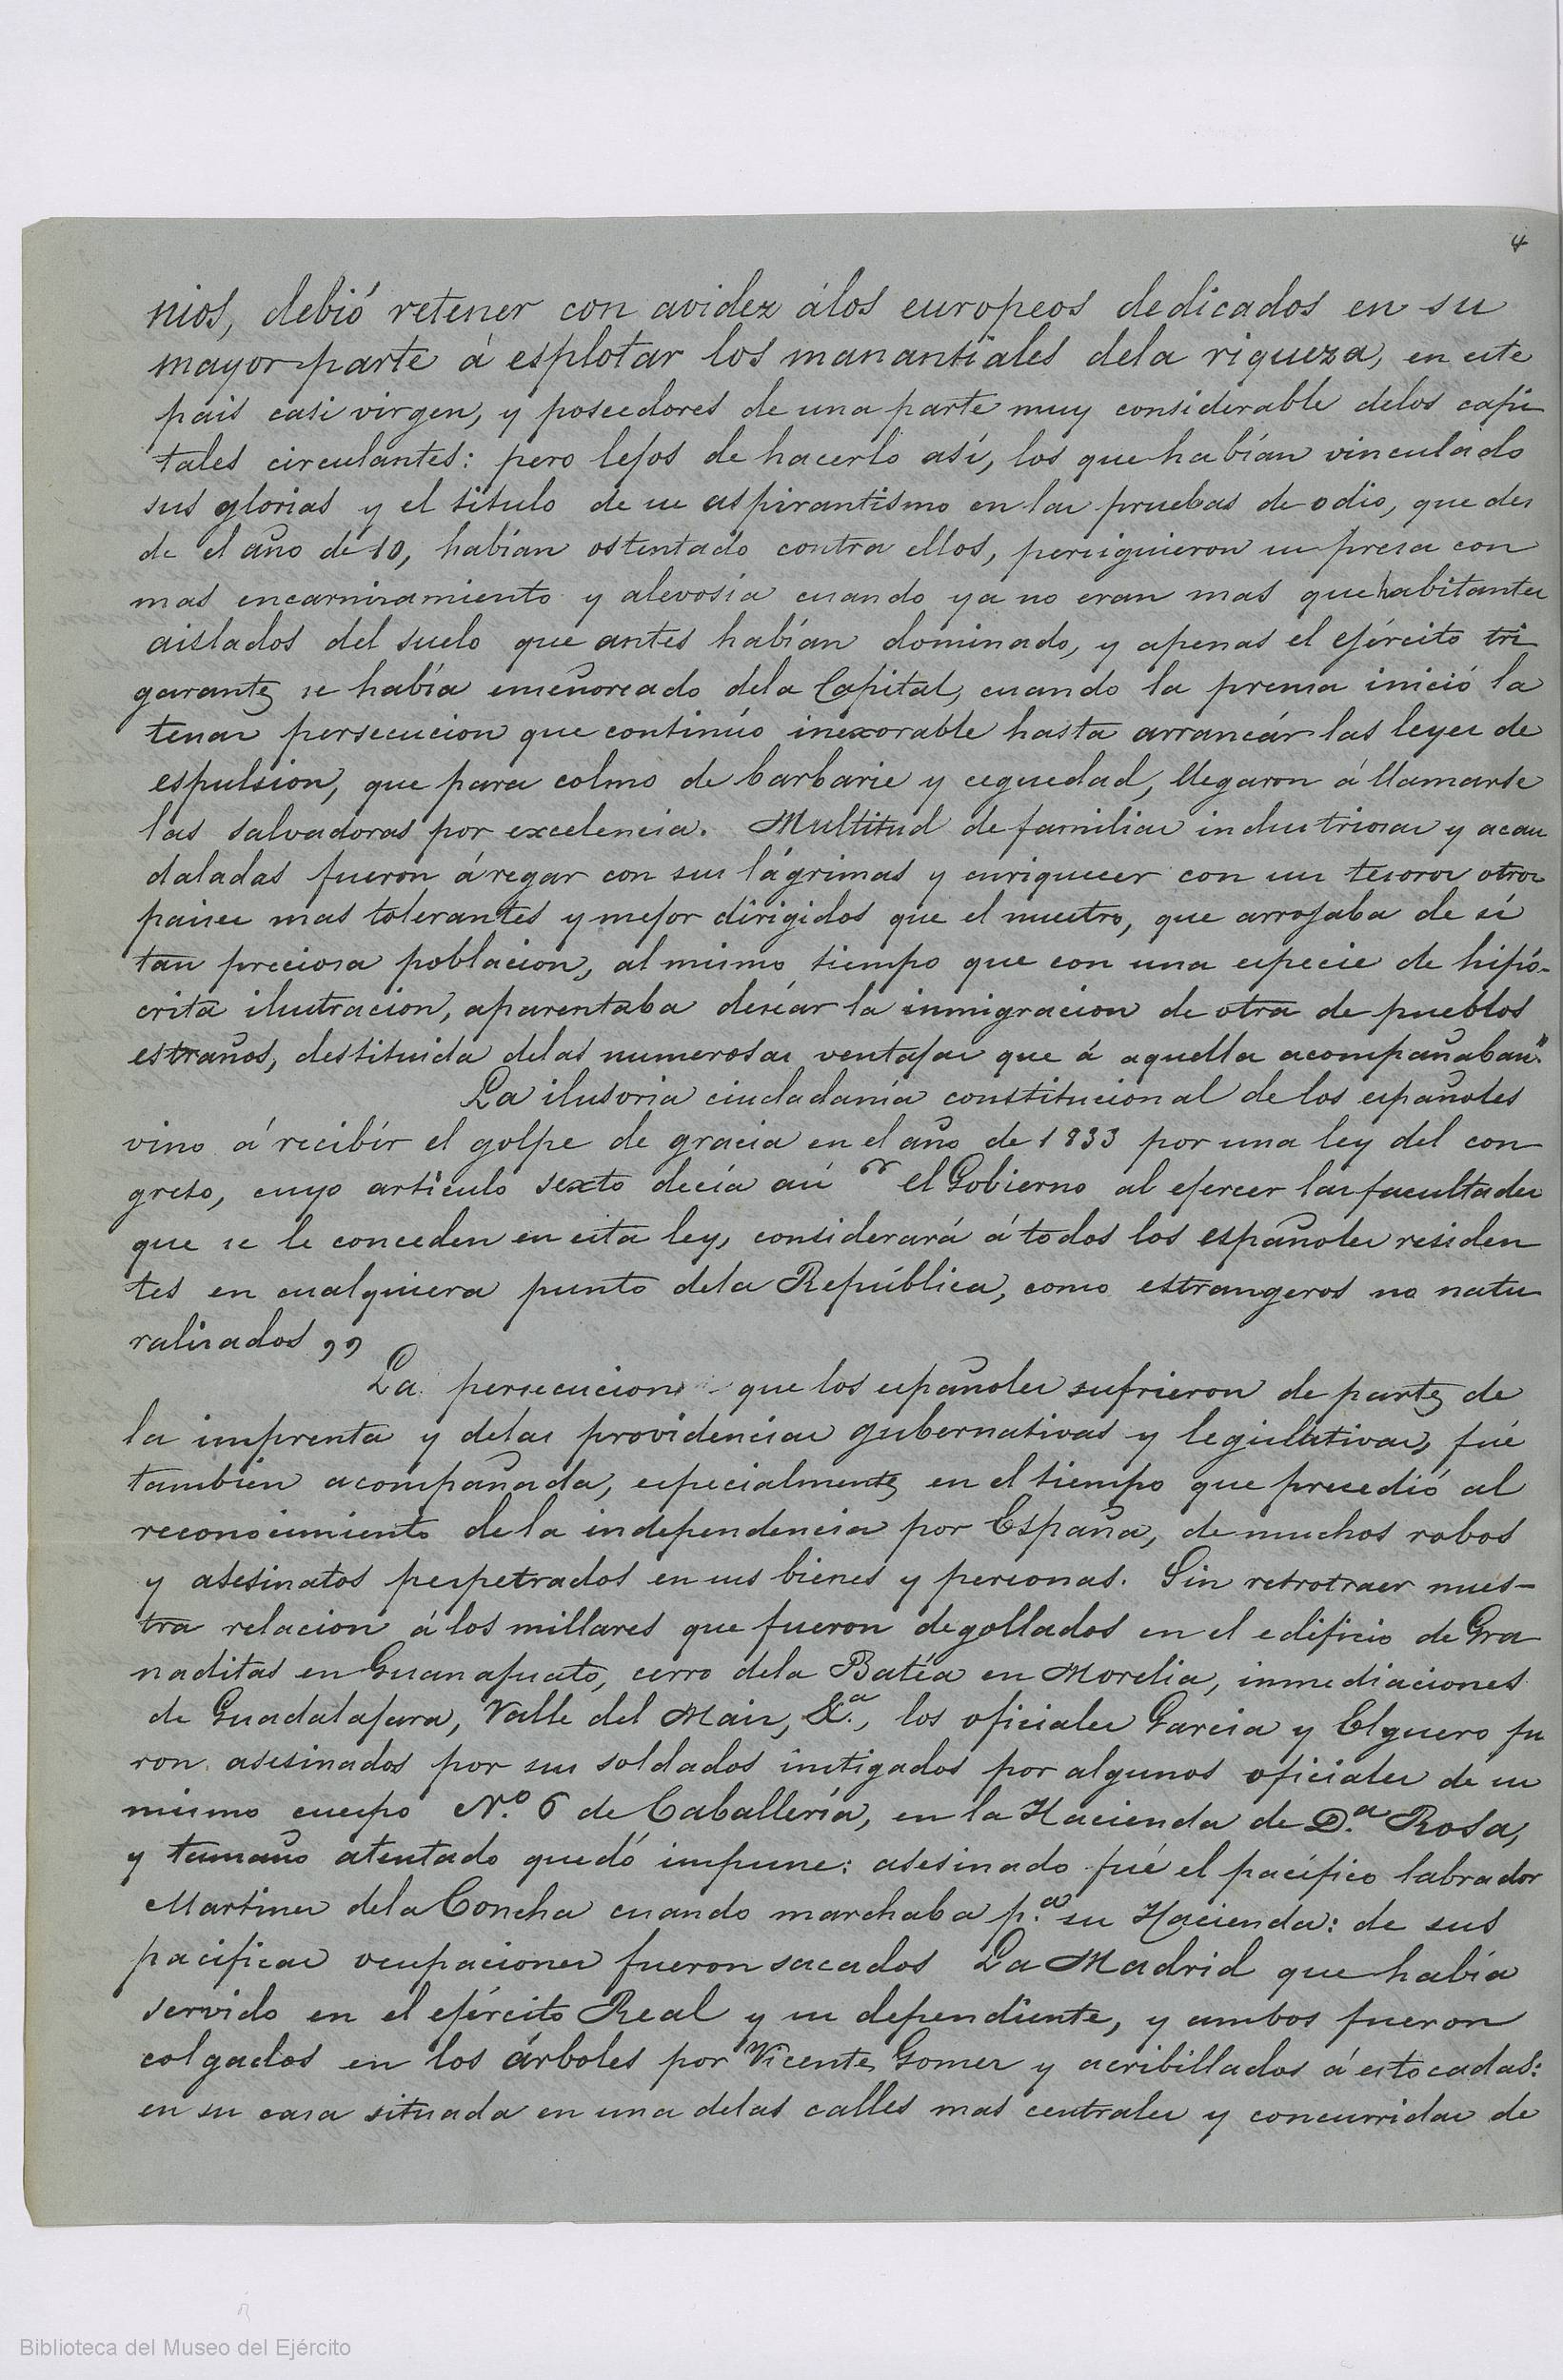 4
nios, debió retener con avidez álos europeos dedicados en su
mayor parte á esplotar los manantiales dela riqueza, en este
pais casi virgen, y poseedores de una parte muy considerable delos capi
tales circulantes: pero lejos de hacerlo así, los que habían vinculado
sus glorias y el titulo de su aspirantismo en las pruebas de odio, que des
de el año de 10, habían ostentado contra ellos, persiguieron su presa con
mas encarnizamiento y alevosía cuando ya no eran mas que habitantes
aislados del suelo que antes habían dominado, y apenas el ejército tri
garante se había enseñoreado dela Capital, cuando la prensa inició la
tenaz persecucion que continúo inexorable hasta arrancár las leyes de
espulsion, que para colmo de barbarie y ceguedad, llegaron á llamarse
las salvadoras por excelencia. Multitud de familias industriosas y acau
daladas fueron á regar con sus lágrimas y enriquecer con sus tesoros otros
paises mas tolerantes y mejor dirigidos que el nuestro, que arrojaba de sí
tan preciosa poblacion, al mismo tiempo que con una especie de hipó-
crita ilustracion, aparentaba deséar la inmigracion de otra de pueblos
estraños, destituida delas numerosas ventajas que á aquella acompañaban."
La ilusoria ciudadanía constitucional de los españoles
vino á recibír el golpe de gracia en el año de 1833 por una ley del con
greso, cuyo artículo sexto decía así " el Gobierno al ejercer las facultades
que se le conceden en esta ley, considerará á todos los españoles residen
tes en cualquiera punto dela República, como estrangeros no natu
ralizados ,,
La persecucion que los españoles sufrieron de parte de
la imprenta y delas providencias gubernativas y legislativas, fué
tambien acompañada, especialmente en el tiempo que precedió al
reconocimiento dela independencia por España, de muchos robos
y asesinatos perpetrados en sus bienes y personas. Sin retrotraer nues-
tra relacion á los millares que fueron degollados en el edificio de Gra
naditas en Guanajuato, cerro dela Batéa en Morelia, inmediaciones
de Guadalajara, Valle del Maiz, &.ª, los oficiales Garcia y Elguero fu
ron asesinados por sus soldados instigados por algunos oficiales de su
mismo cuerpo N.º 6 de Caballería, en la Hacienda de D.ª Rosa,
y tamaño atentado quedó impune: asesinado fué el pacífico labrador
Martinez dela Concha cuando marchaba p.ª su Hacienda: de sus
pacificas ocupaciones fueron sacados La Madrid que había
servido en el ejército Real y su dependiente, y ambos fueron
colgados en los árboles por Vicente Gomez y acribillados á estocadas:
en su casa situada en una delas calles mas centrales y concurridas de
Biblioteca del Museo del Ejército